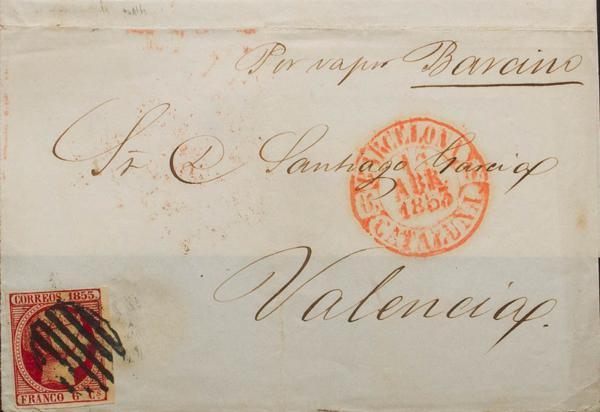 Por vapor Barcino
Sr. D. Santiago Garcia
BARCELONA
ABR.
1853
CATALUÑA
Valencia.
CORREOS 1853
FRANCO 6 Cs